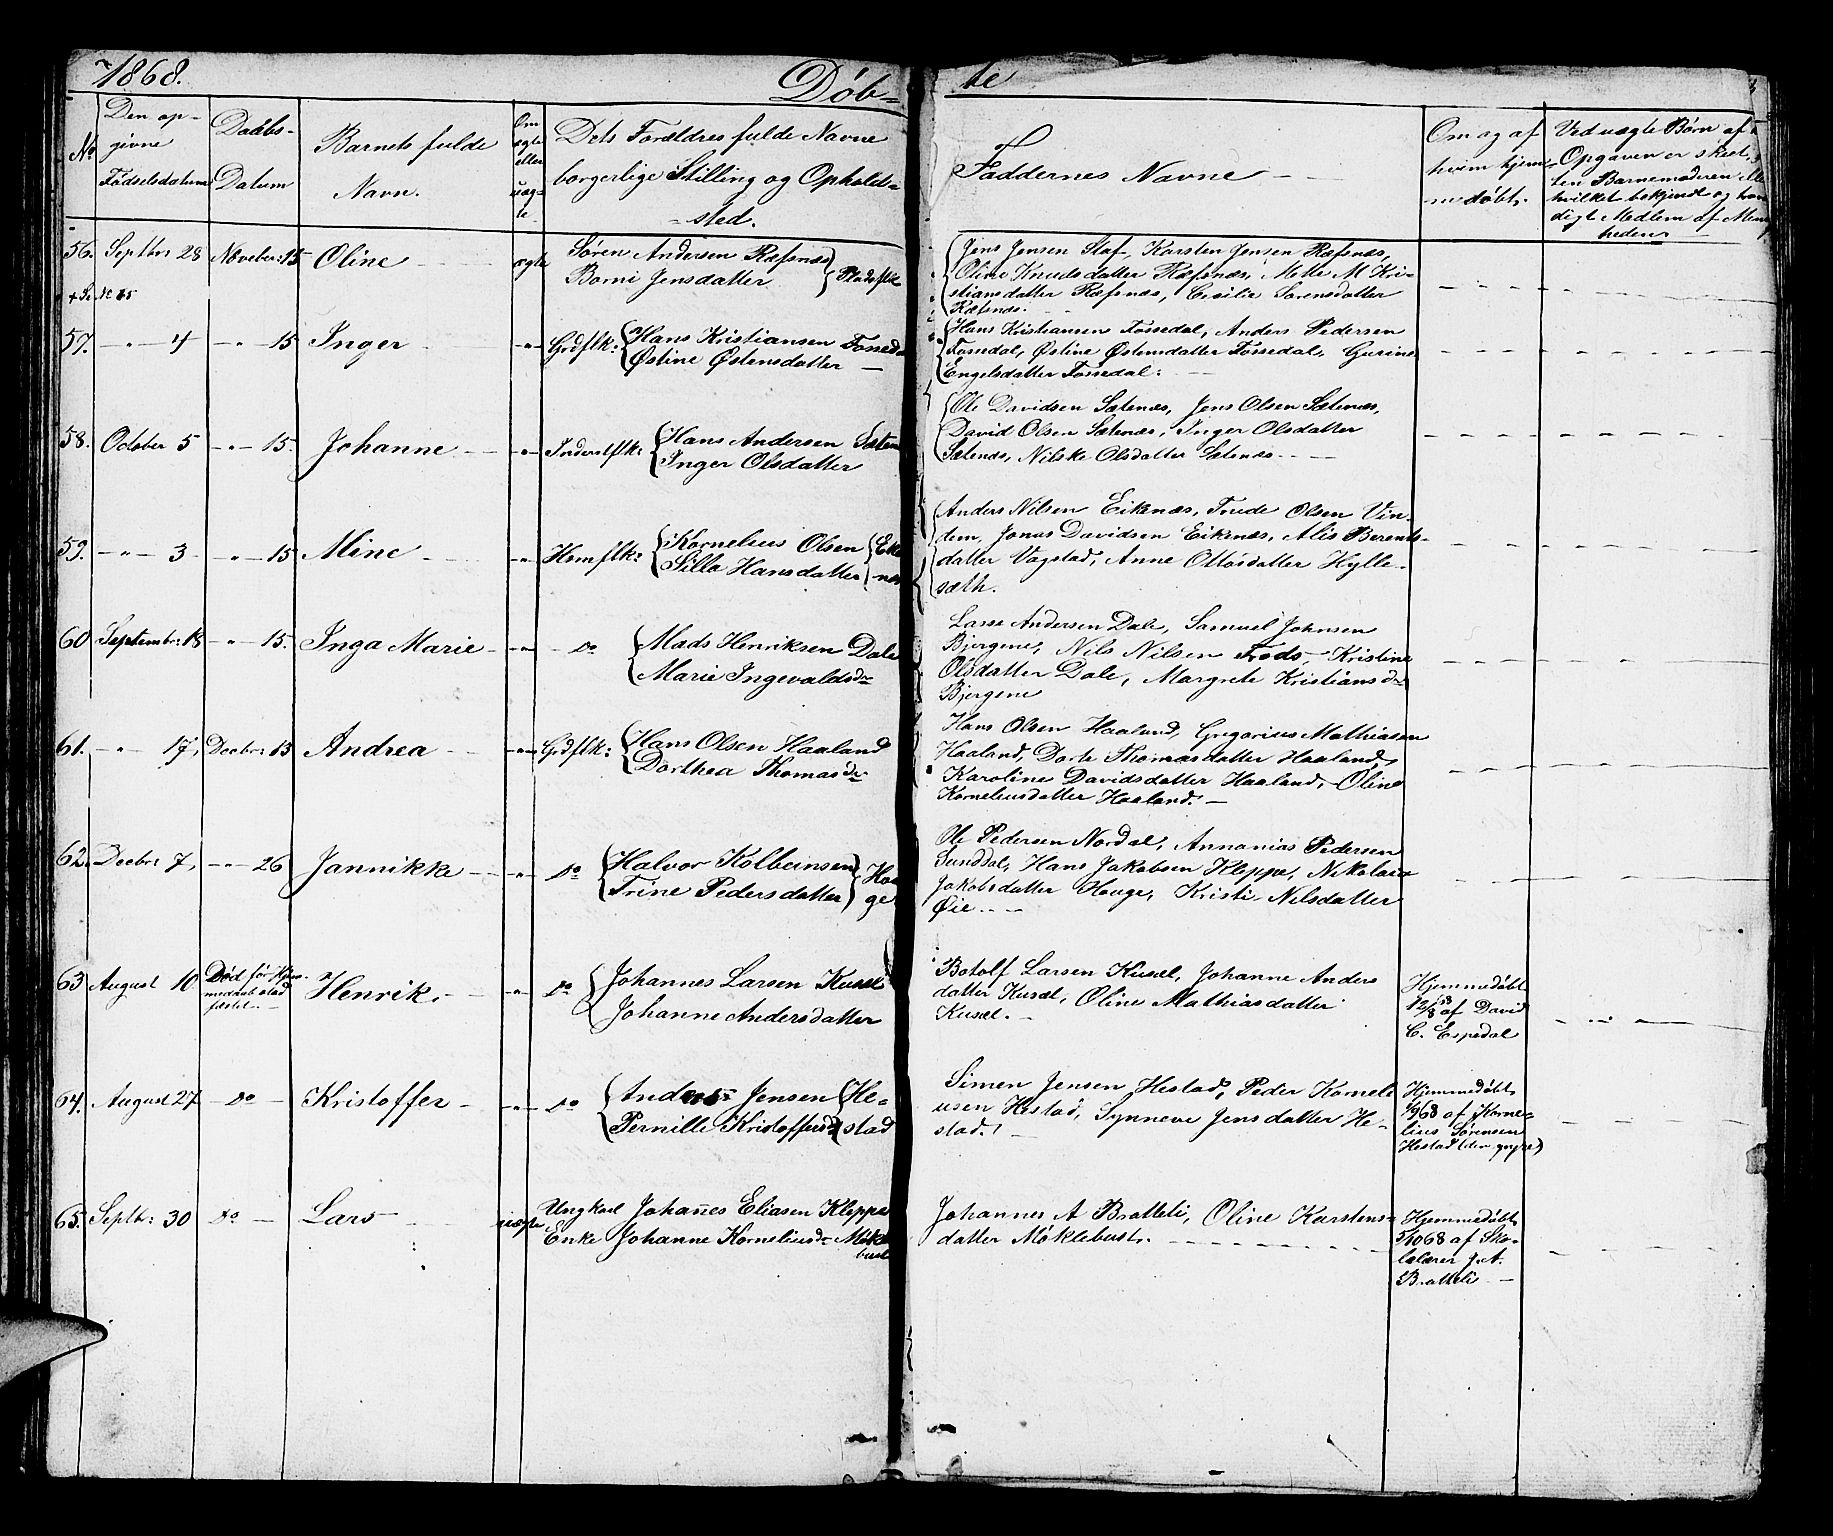 1868.
Døb-
te
No
Den op-
givne
Fødselsdatum
Daabs-
Datum
Barnets fulde
Navn.
Om
ægte
eller
uæg-
te
Dets Forældres fulde Navne
borgerlige Stilling og Opholds-
sted.
Faddernes Navne
Om og af
hvem hjem-
medøbt.
Ved uægte Børn af
Opgaven er skeet,
ten Barnemoderen
hvilket bekjendt og
digt Medlem af
heden
56. Septbr 28 November 15 Oline ægte
Søren Andersen Ræfsnæs
Borni Jensdatter } Pladsflk
Jens Jensen Staf, Karsten Jensen Ræfsnæs,
Oline Knudsdatter Ræfsnæs, Mette M Kri-
stiansdatter Ræfsnæs, Cesilie Sørensdatter
Ræfsnæs.
57. -"- 4 -"- 15 Inger -"- Grdflk:
Hans Kristiansen Fossedal
Østine Østensdatter
Hans Kristiansen Fossedal, Anders Pedersen
Fossedal, Østine Østensdatter Fossedal, Gurine
Engelsdatter Fossedal.
58. October 5 -"- 15. Johanne -"- Inderstflk:
Hans Andersen Sætenæs
Inger Olsdatter
Ole Davidsen Sætenæs, Jens Olsen Sætenæs,
David Olsen Sætenæs, Inger Olsdatter
Sætenæs, Nilske Olsdatter Sætenæs
59. -"- 3 -"- 15 Mine -"- Hsmflk:
Kornelius Olsen
Silla Hansdatter
Eik
næs
Anders Nilsen Eiknæs, Trude Olsen Vin-
dem, Jonas Davidsen Eiknæs, Alis Berents-
datter Vagstad, Anne Ottosdatter Hylle-
sæth.
60 Septembr: 18 -"- 15. Inga Marie -"- Do
Mads Henriksen Dale
Marie Ingevaldsdr
Lasse Andersen Dale, Samuel Johnsen
Bjergene, Nils Nilsen, Kristine
Olsdatter Dale, Margrete Kristiansdr
Bjergene
61. -"- 17, Decbr: 13 Andrea -"- Grdflk:
Hans Olsen Haaland
Dorthea Thomasdr
Hans Olsen Haaland, Gregorius Mathiasen
Haaland, Dorte Thomasdatter Haaland,
Karoline Davidsdatter Haaland, Oline
Korneliusdatter Haaland.
62. Decbr: 7, -"- 26 Jannikke -"- Do
Halvor Kolbeinsen
Trine Pedersdatter
Hou
ge
Ole Pedersen Nordal, Annanias Pedersen
Sunddal, Hans Jakobsen Kleppe, Nikolava
Jakobsdatter Houge, Kristi Nilsdatter
Øie
63 August 10 Død før Hjem-
medaab stad
fæstet. Henrik, -"- Do
Johannes Larsen Kusæl
Johanne Andersdatter
Botolf Larsen Kusæl, Johanne Anders
datter Kusæl, Oline Mathiasdatter
Kusæl.
Hjemmedøbt
12/8 68 af David
C. Espedal
64. August 27 Do Kristoffer -"- Do
Andreas Jensen
Pernille Kristoffersdr
He-
stad
Simen Jensen Hestad, Peder Korneli
usen Hestad, Synneve Jensdatter He-
stad.
Hjemmedøbt
1/9 68 af Korne-
lius Sørensen
Hestad (den yngre)
65. Septbr: 30 Do Lars uægte
Ungkarl Johañes Eliasen Kleppe
Enke Johanne Korneliusdr Møkle
bust
Johannes A Bratteli, Oline Karstens-
datter Møklebust.
Hjemmedøbt
5/10 68 af Sko-
lelærer J. A.
Bratteli